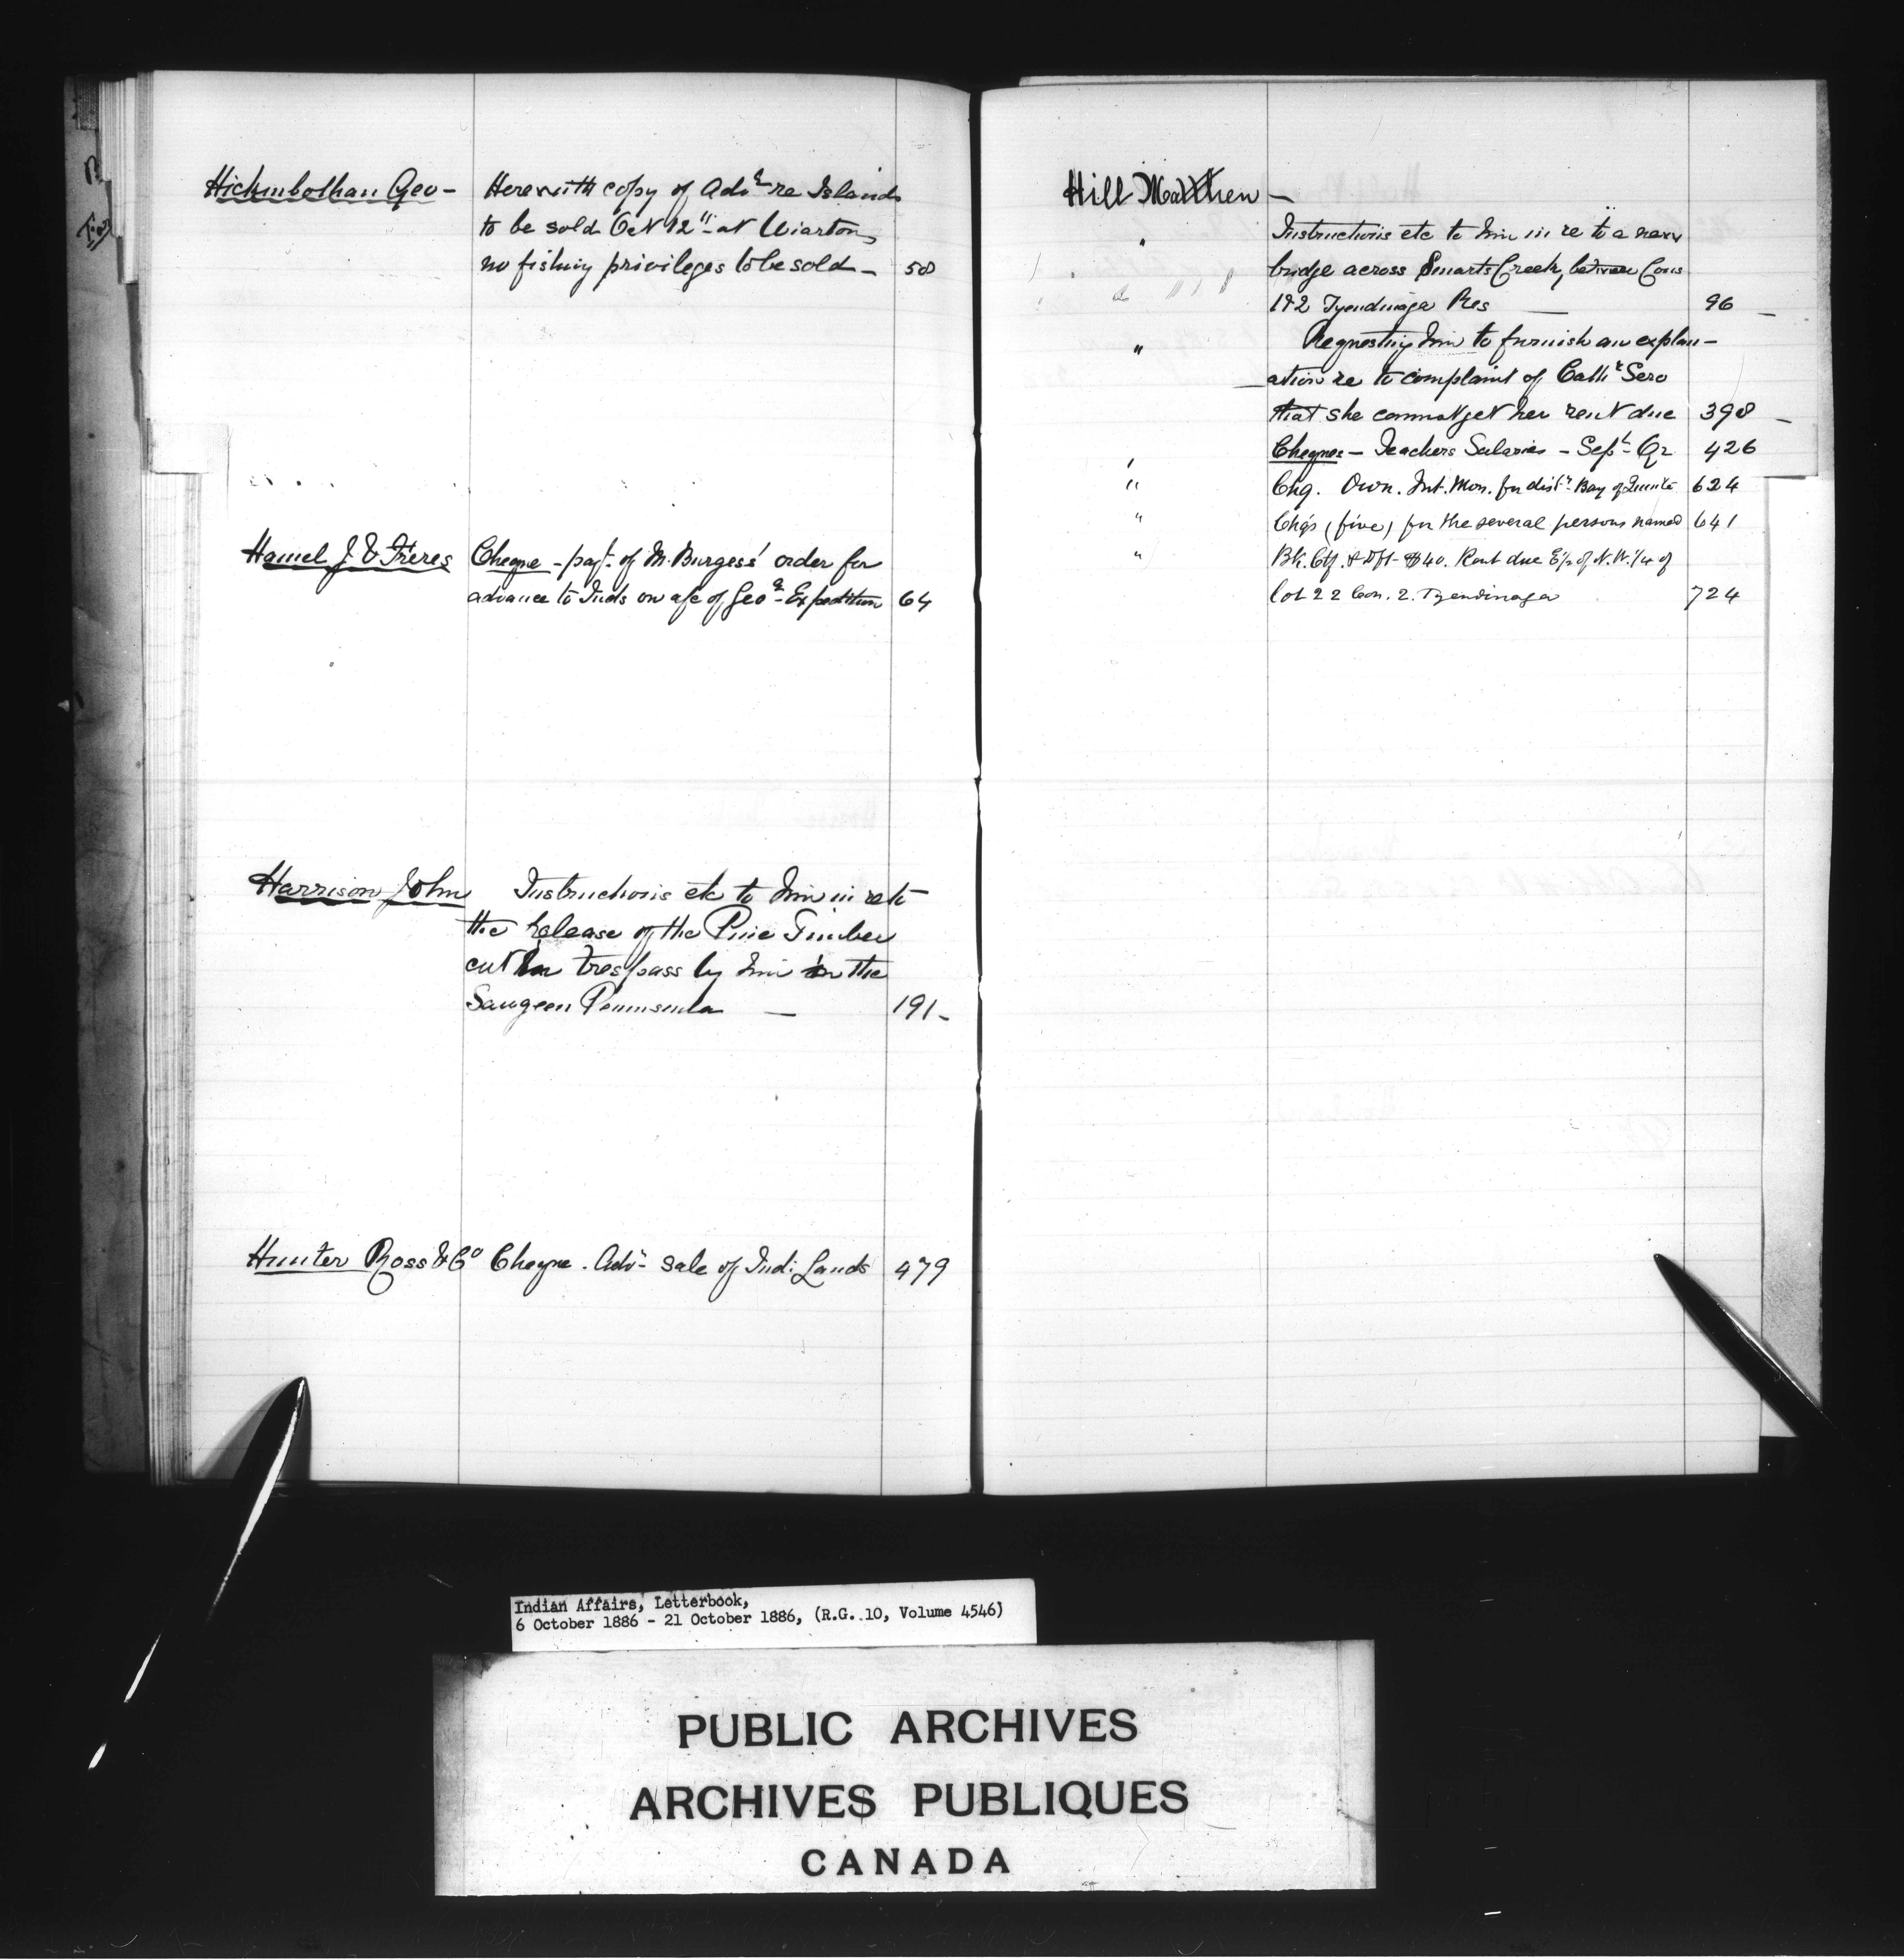 Hickmbothan Geo - Herewith copy of Advt re Islands
to be sold Oct 12" at Wiarton,
no fishing privileges to be sold - 50
Hamel J. & Freres Cheque - payt of M. Burgess' order for
advance to Inds on a/c of Geol Expedition 64
Harrison John Instructions etc to him in re to
the release of the Pine Timber
cut in trespass by him in the
Saugeen Peninsula - 191-
Hunter Ross & Co Cheque. Advt sale of Ind: Lands 479
Hill Matthew -
" Instructions etc to him in re to a new
bridge across Smarts Creek, between Cons
1 & 2 Tyendinaga Res - 96 -
" Requesting him to furnish an explan-
ation re to complaint of Cathe Sero
that she cannot get her rent due 398 -
" Cheques - Teachers Salaries - Sept Qr 426
" Chq. Own. Int. Mon. for distn Bay of Quinte 624
" Chqs (five) for the several persons named 641
" Bk. Ctf. & Dft - $40. Rent due E½ of N.W.¼ of
lot 22 Con. 2. Tyendinaga 724
Indian Affairs, Letterbook,
6 October 1886 - 21 October 1886, (R.G. 10, Volume 4546)
PUBLIC ARCHIVES
ARCHIVES PUBLIQUES
CANADA